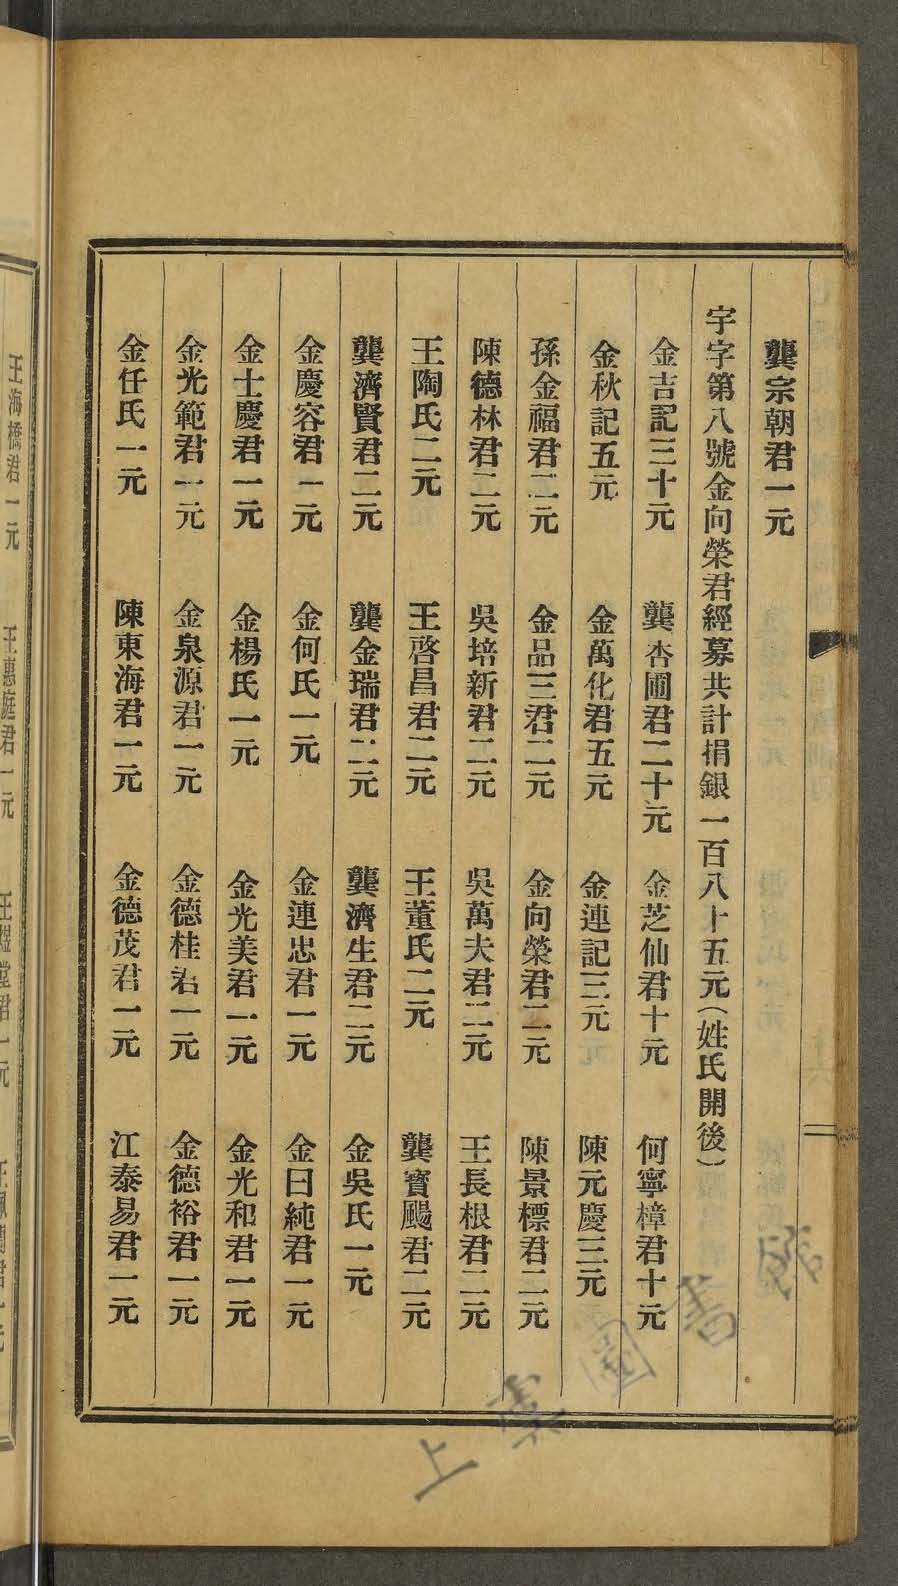 龔宗朝君一元
宇字第八號金向榮君經募共計捐銀一百八十五元（姓氏開後）
金吉記三十元　龔杏圃君二十元　金芝仙君十元　何寧樟君十元
金秋記五元　金萬化君五元　金連記三元　陳元慶三元
孫金福君二元　金品三君二元　金向榮君二元　陳景標君二元
陳德林君二元　吳培新君二元　吳萬夫君二元　王長根君二元
王陶氏二元　王啓昌君二元　王董氏二元　龔寶颺君二元
龔濟賢君二元　龔金瑞君二元　龔濟生君二元　金吳氏一元
金慶容君一元　金何氏一元　金連忠君一元　金曰純君一元
金士慶君一元　金楊氏一元　金光美君一元　金光和君一元
金光範君一元　金泉源君一元　金德桂君一元　金德裕君一元
金任氏一元　陳東海君一元　金德茂君一元　江泰易君一元
王海橋君一元　王惠庭君一元
上虞圖書館